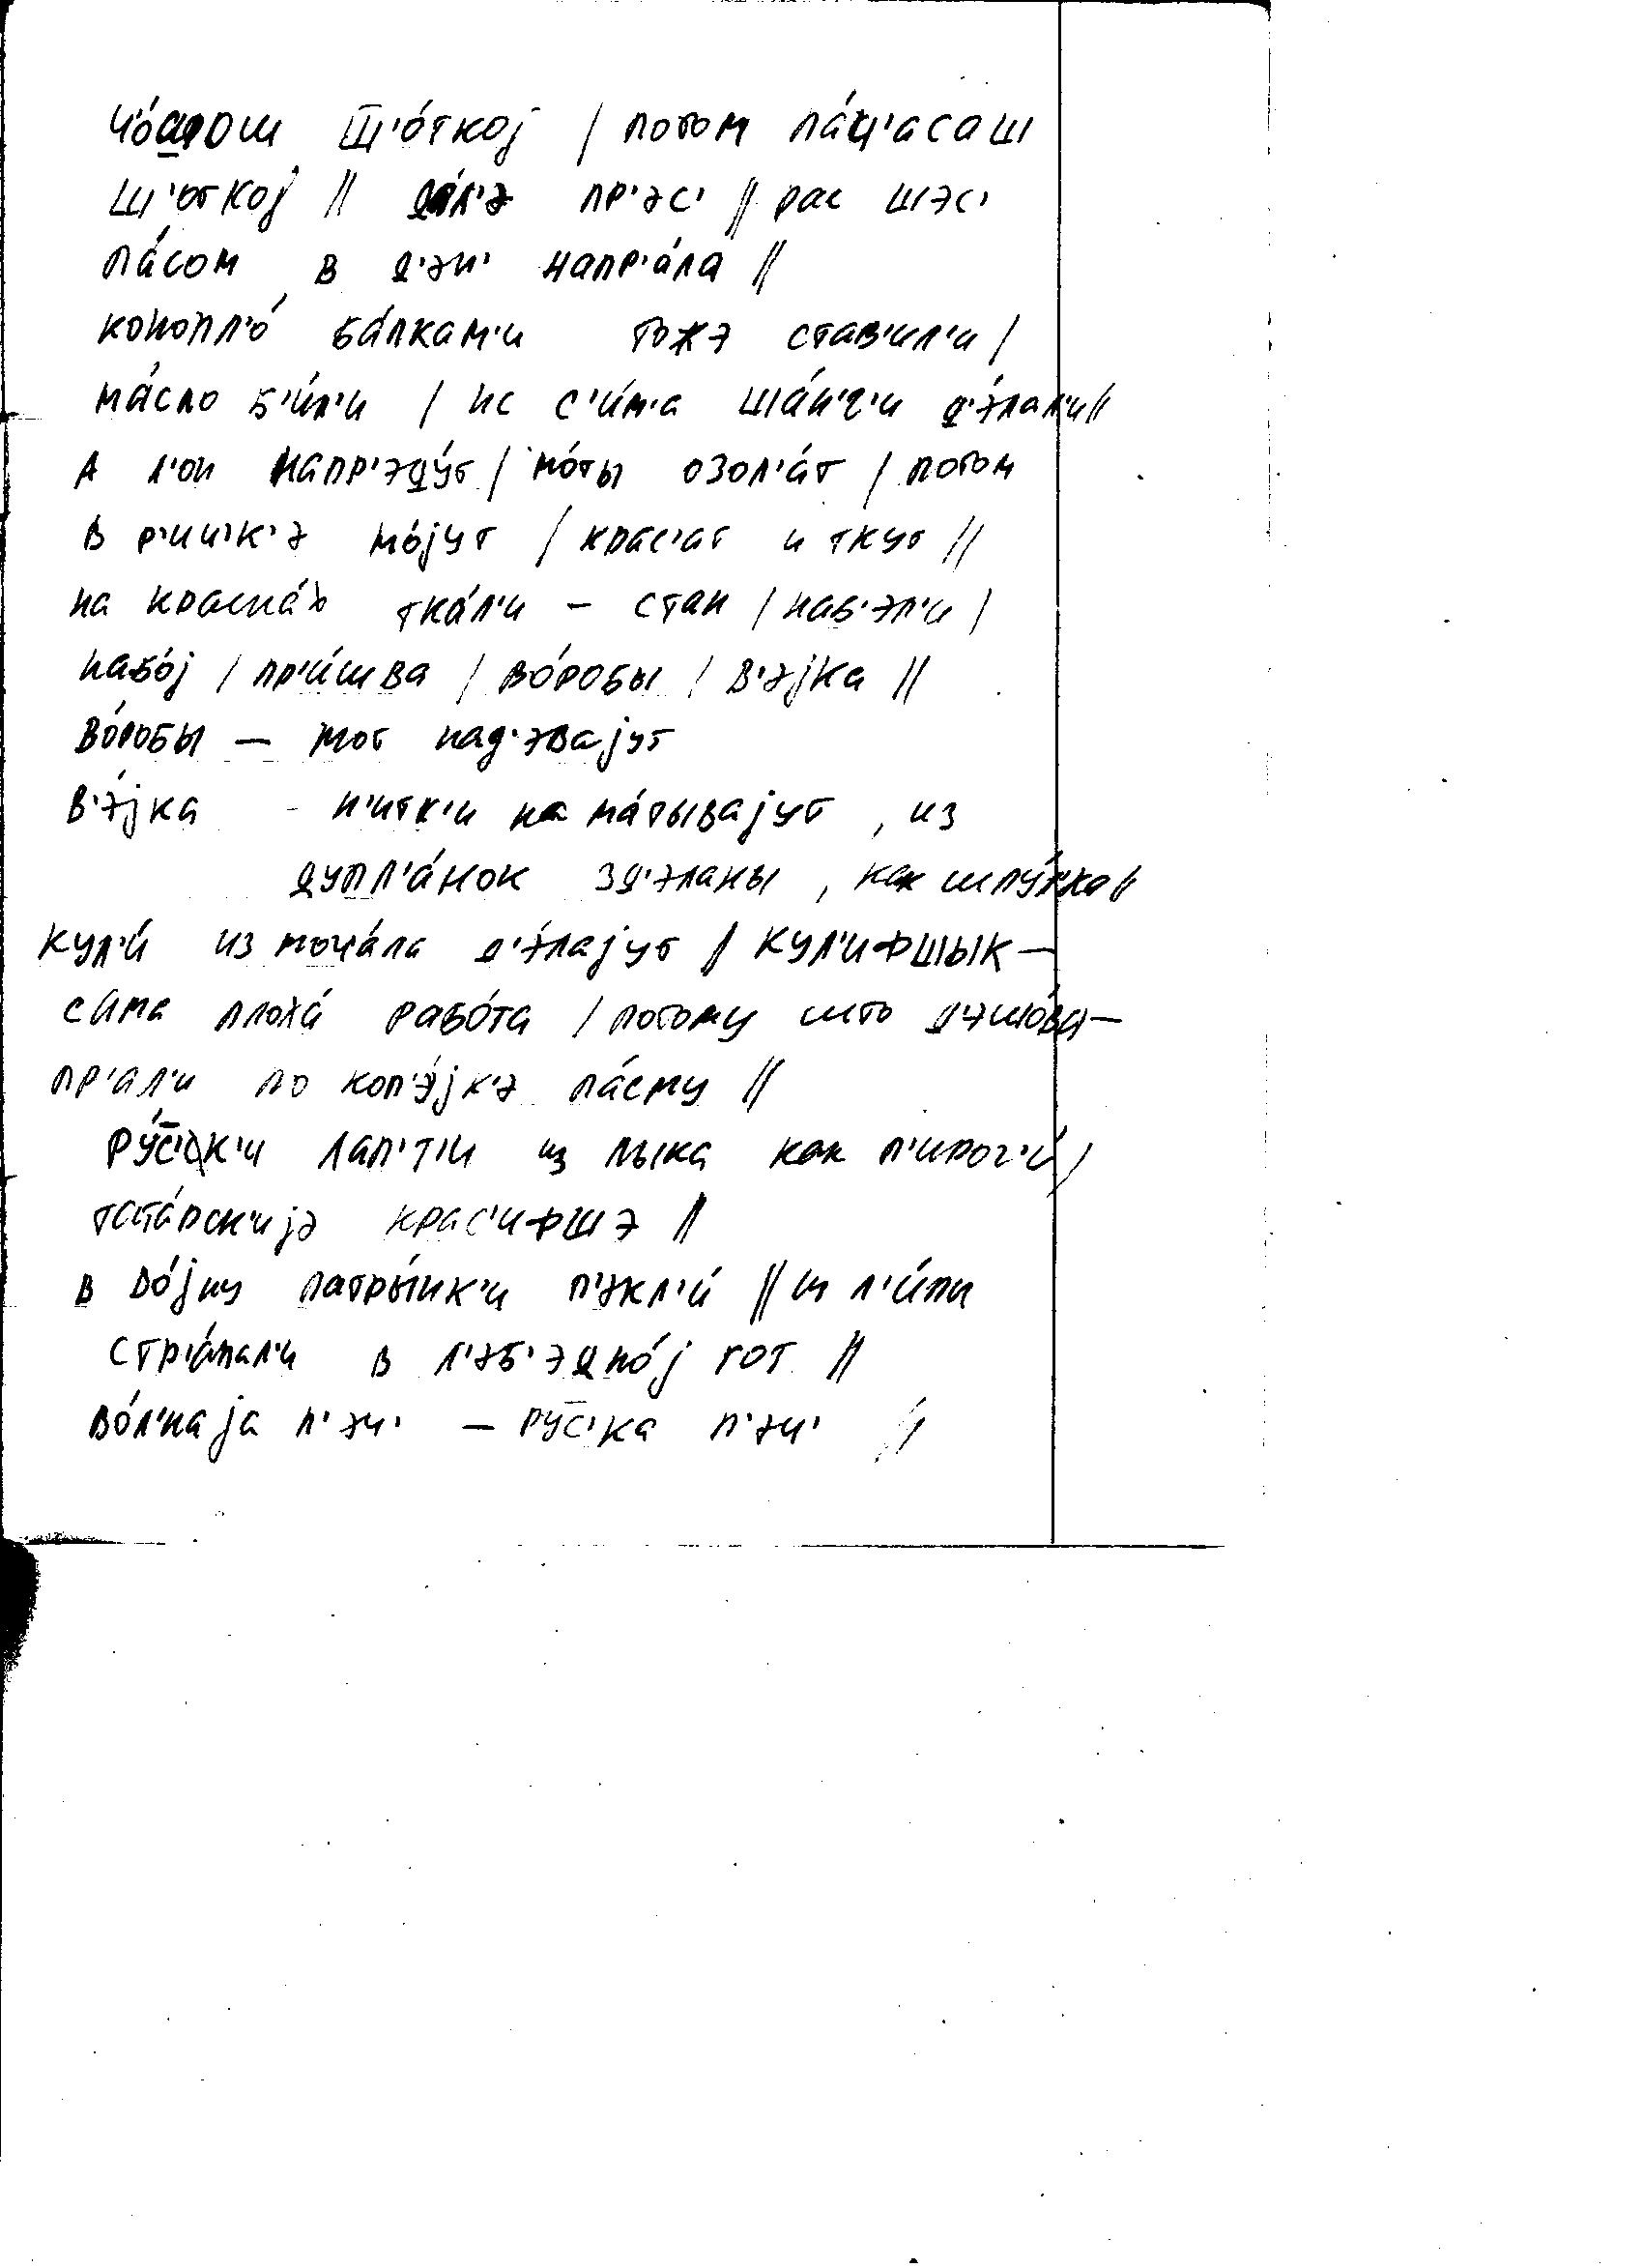 ш̄'о́ткој / потом па́ч'асаш
ш'откој // да́л'э пр'эс' // рас шэс'
па́сом в д'эн' напр'а́ла //
конопл'о́ ба́пкам'и тожэ став'ил'и /
ма́сло б'и́л'и / ис с'и́м'а ша́н'г'и д'э́лал'и //
А л'он напр'эду́т / мо́ты озол'а́т / потом
в р'и́ч'к'э мо́јут / крас'ат и ткут //
на кросна́х тка́л'и – стан / наб'эл'и /
набо́ј / пр'и́шва / во́робы / в'э́јка //
во́робы – мот над'эвајут
в'э́јка - н'итк'и на ма́тывајут , из
дупл'а́нок зд'эланы , как шпу́лка //
кул'и́ из моча́ла д'э́лајут // кул'ифшык –
са́ма плоха́ рабо́та / потому што дэшо́ва –
пр'ал'и по коп'э́јк'э па́сму //
ру́с̄'к'и лап'т'и из лыка как п'ирог'и́ /
тата́рск'ијэ крас'ифшэ //
в во́јну латры́шк'и п'экл'и́ // из л'и́пы
стр'а́пал'и в л'эб'эдно́ј гот //
во́л'наја п'эч' – рус̄'ка п'эч' //